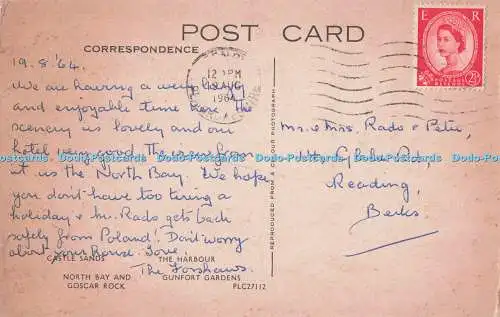 POST CARD
CORRESPONDENCE
19.8.'64.
We are having a very
and enjoyable time here. The
scenery is lovely and our
hotel very good. The view from
it is the North Bay. We hope
you don't have too tiring a
holiday & Mr. Rado gets back
safely from Poland. Don't worry
about your house. Love
The Forshaws.
CASTLE SANDS THE HARBOUR
NORTH BAY AND GUNFORT GARDENS
GOSCAR ROCK PLC27112
REPRODUCED FROM A COLOUR PHOTOGRAPH
12 PM
AUG
1964
E R
POSTAGE REVENUE
2½D
Mr. & Mrs. Rado & Peter,
Rd,
Reading,
Berks
Postcards Dodo-Postcards Dodo-Postcards Dodo-Postcards Dodo-Postcards Dodo-Postcards